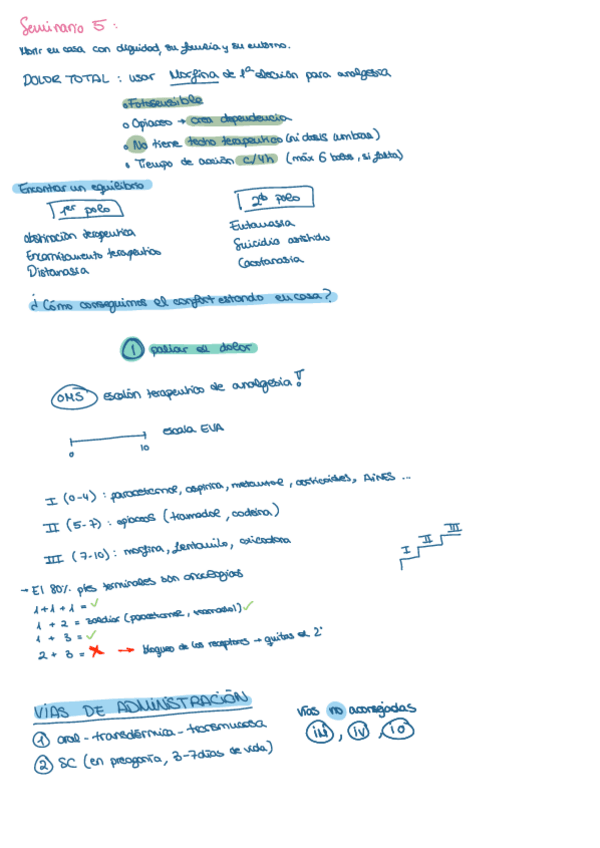 Seminario 5:
Morir en casa con dignidad, su familia y su entorno.
DOLOR TOTAL : usar Morfina de 1ª elección para analgesia
• Fotosensible
• Opiaceo → crea dependencia
• No tiene techo terapeutico (ni dosis ambas)
• Tiempo de acción c/4h (máx 6 bolos, si falta)
Encontrar un equilibrio
1er polo
2do polo
abstinación terapeutica
Encarnizamiento terapeutico
Distanasia
Eutanasia
Suicidio asistido
Cacotanasia
¿Cómo conseguimos el confort estando en casa?
1 paliar el dolor
OMS escalón terapeutico de analgesia!
escala EVA
0 10
I (0-4) : paracetamol, aspirina, metamizol, corticoides, AINES ...
II (5-7) : opiaceos (tramadol, codeina)
III (7-10) : morfina, fentanilo, oxicodona
I II III
→ El 80% ptes terminales son oncologias
1+1+1 = ✓
1 + 2 = zaldiar (paracetamol, tramadol) ✓
1 + 3 = ✓
2 + 3 = ✗ → bloqueo de los receptores → quitas el 2º
VÍAS DE ADMINISTRACIÓN
1 oral - transdérmica - transmucosa
2 SC (en preagonía, 3-7 días de vida)
vías no aconsejadas
IM, IV, IO